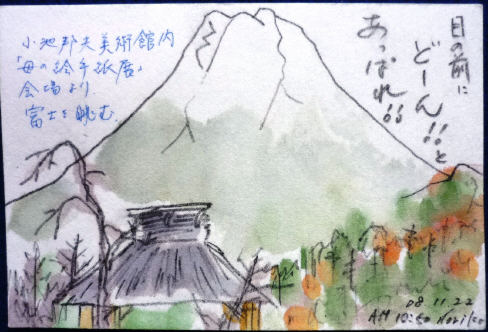 目の前に
どーん!!と
あっぱれ!!
小池邦夫美術館内
「母の絵手紙展」
会場より
富士を眺む。
08.11.22
AM 10:50 Noriko